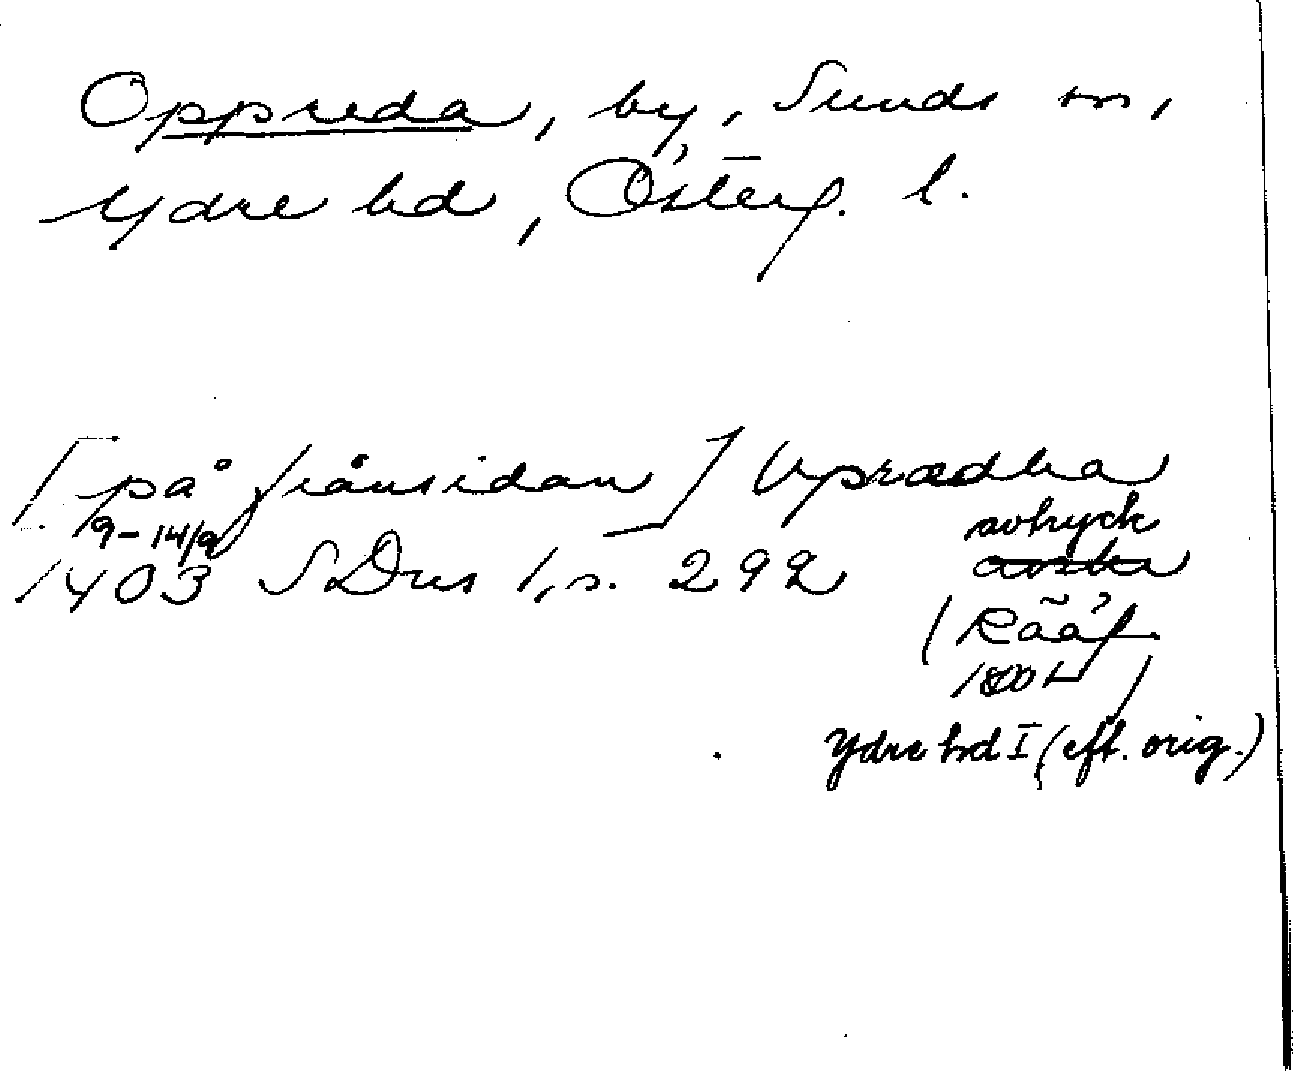 Oppreda, by, Sunds sn,
Ydre hd, Österg. l.
[på frånsidan] Uprædha
9-14/9
1403 SDns 1, s. 292
avtryck
(Rääf
1800t)
Ydre hd I (eft. orig.)